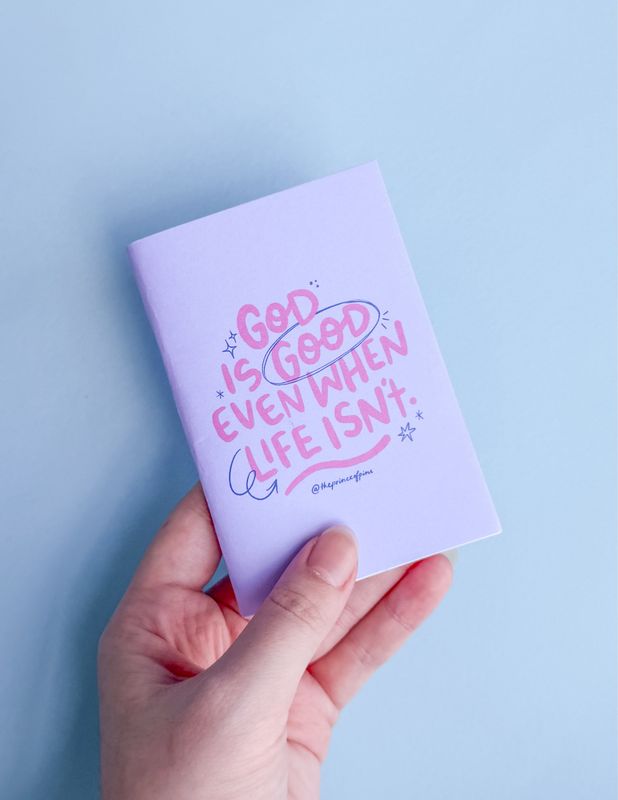 GOD
IS GOOD
EVEN WHEN
LIFE ISN't.
@theprinceofpins